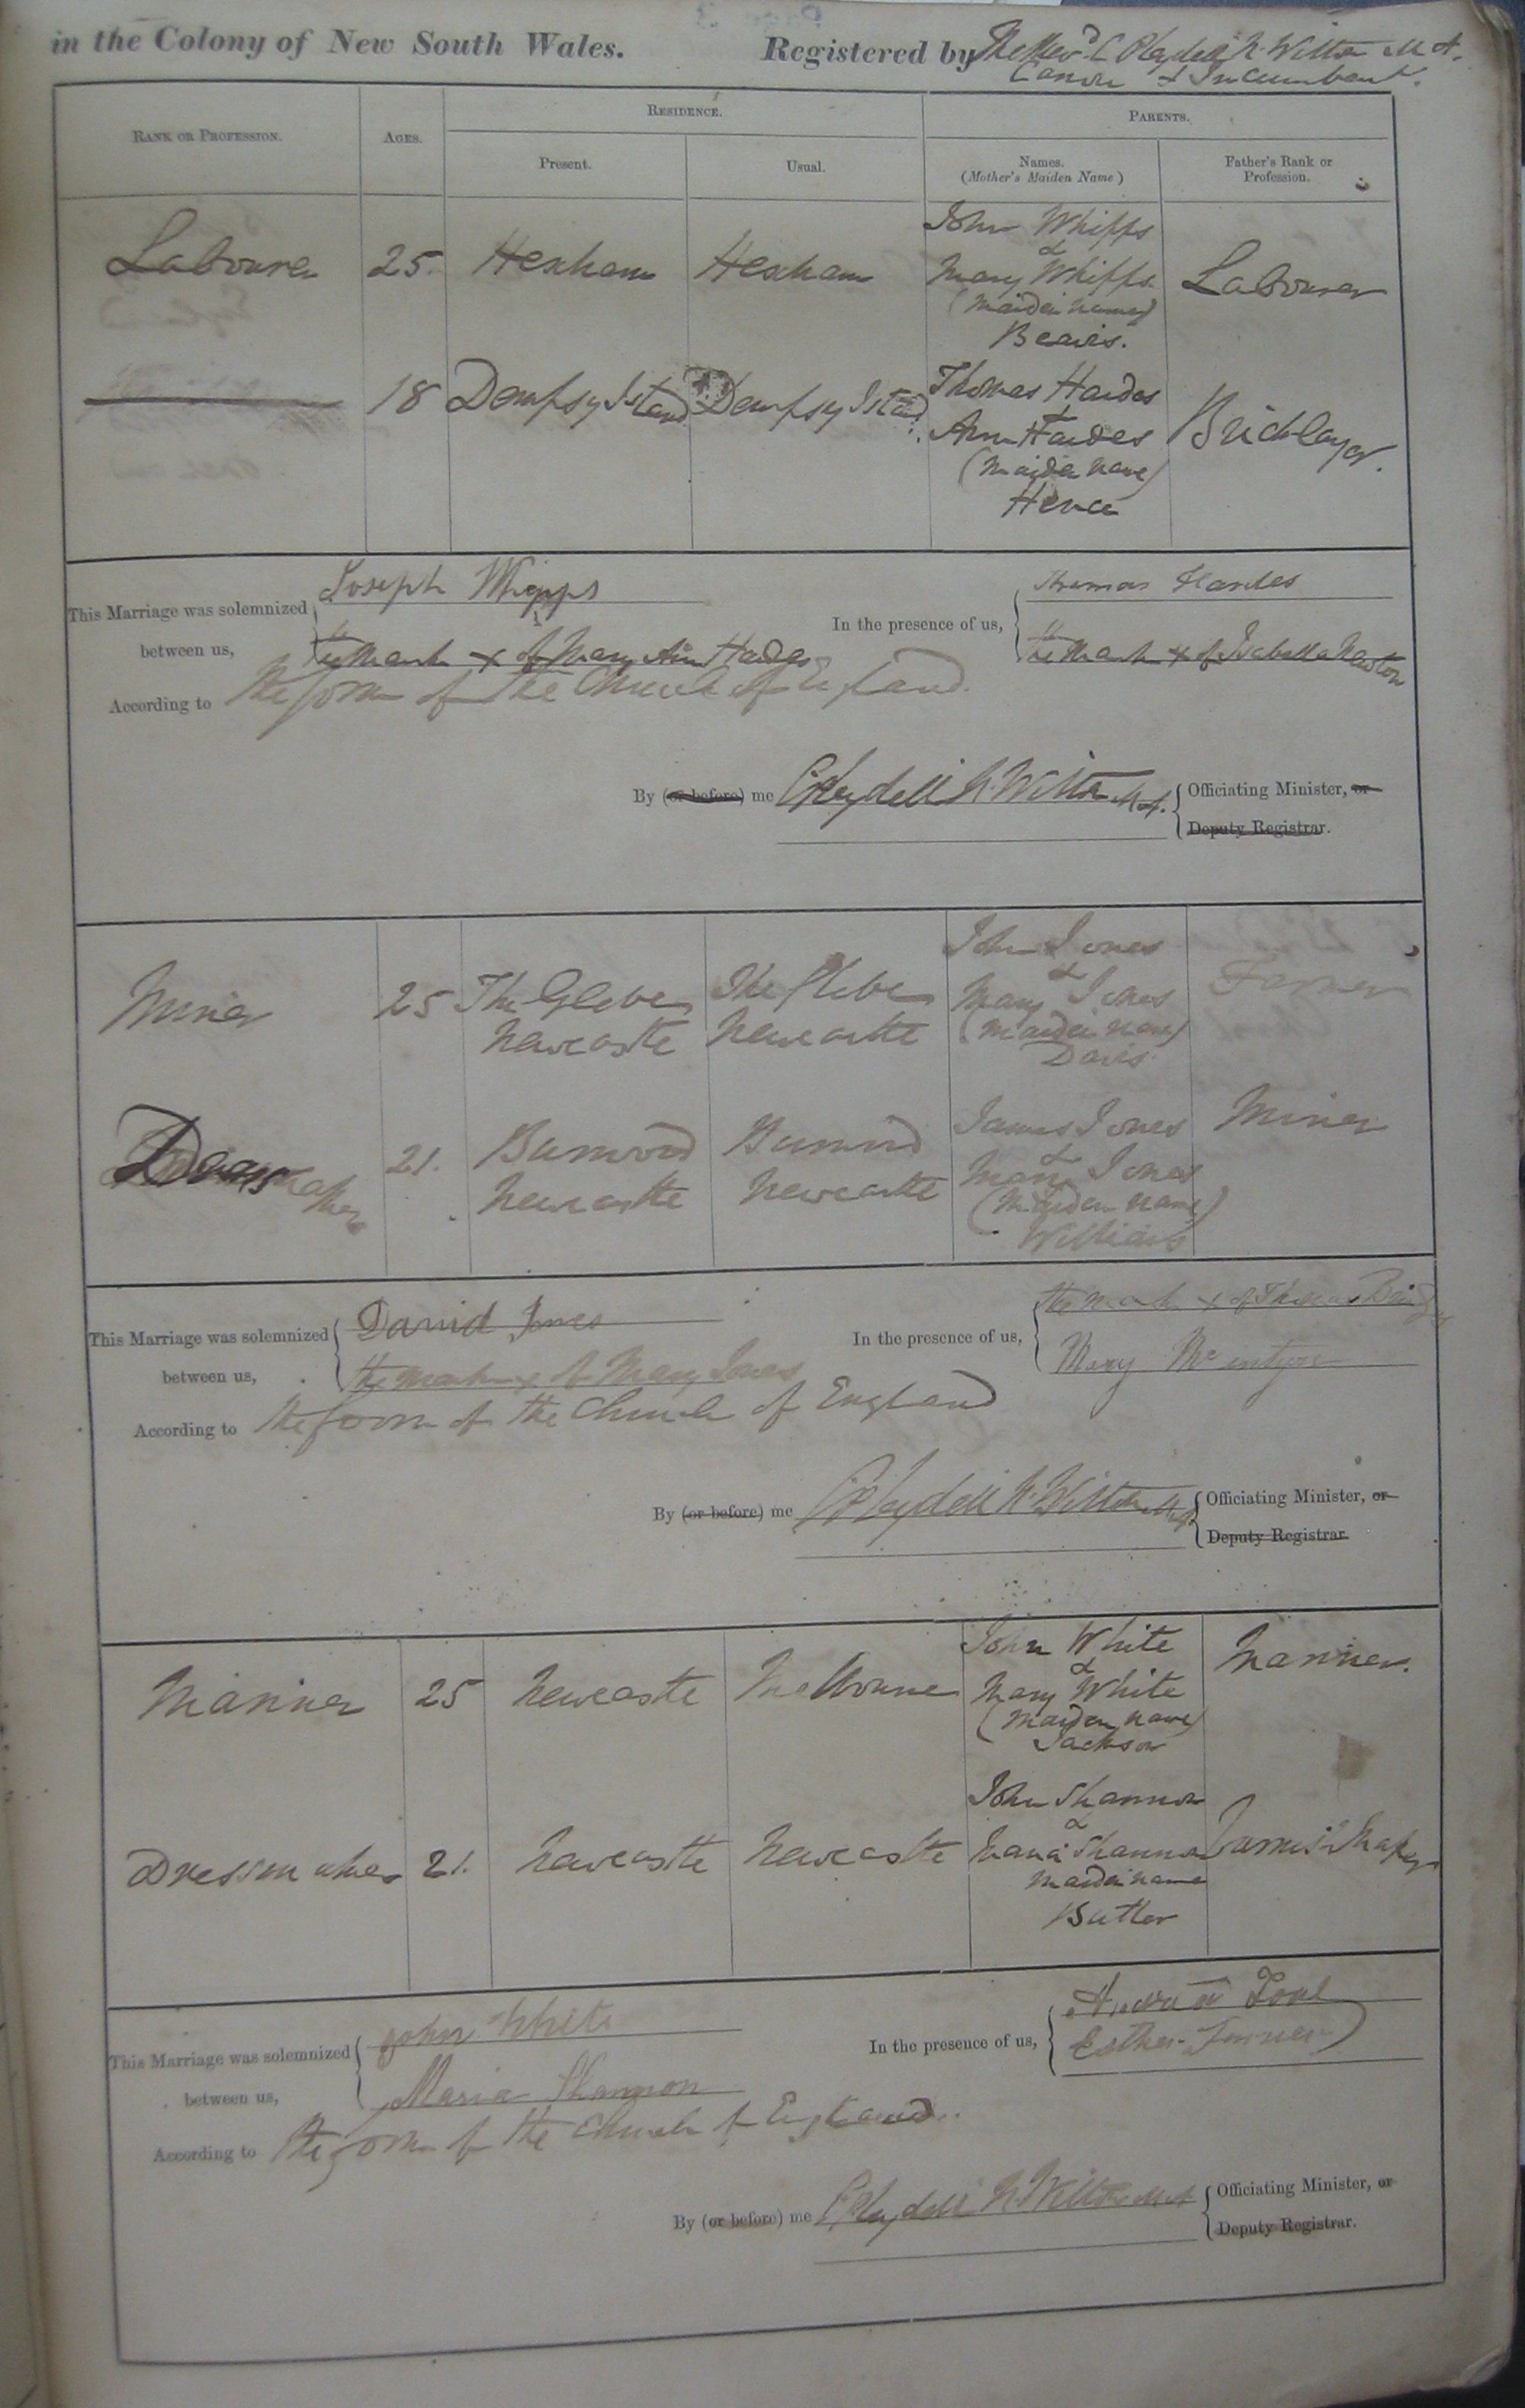 in the Colony of New South Wales. Registered by The Revd C Pleydell N. Wilton M A.
Canon & Incumbent.
RANK OR PROFESSION. AGES. RESIDENCE. PARENTS.
Present. Usual. Names. Father's Rank or
(Mother's Maiden Name) Profession.
John Whipps
&
Labourer 25. Hexham Hexham Mary Whipps Labourer
(Maiden name)
Beavis.
18 Dempsy Island Dempsy Island Thomas Hardes Bricklayer.
&
Ann Hardes
(Maiden name)
This Marriage was solemnized Joseph Whipps In the presence of us, Thomas Hardes
between us, the mark x of Mary Ann Hardes the mark x of Isabella
According to the form of the Church of England.
By (or before) me C Pleydell N. Wilton M.A. Officiating Minister, or
Deputy Registrar.
John Jones
&
Miner 25 The Glebe The Glebe Mary Jones Farmer
Newcastle Newcastle (Maiden name)
Davis.
James Jones Miner
&
21. Burwood Burwood Mary Jones
Newcastle Newcastle (Maiden name)
Williams
This Marriage was solemnized David Jones In the presence of us, the mark x of Thomas
between us, the mark x of Mary Jones Mary McIntyre
According to the form of the Church of England
By (or before) me C Pleydell N. Wilton M.A. Officiating Minister, or
Deputy Registrar.
John White Mariner.
&
Mariner 25 Newcastle Melbourne Mary White
(Maiden name)
Jackson
John Shannon
&
Dressmaker 21. Newcastle Newcastle Maria Shannon
Maiden name
Butler
This Marriage was solemnized John White In the presence of us,
between us, Maria Shannon Esther
According to the form of the Church of England.
By (or before) me C Pleydell N. Wilton M.A Officiating Minister, or
Deputy Registrar.